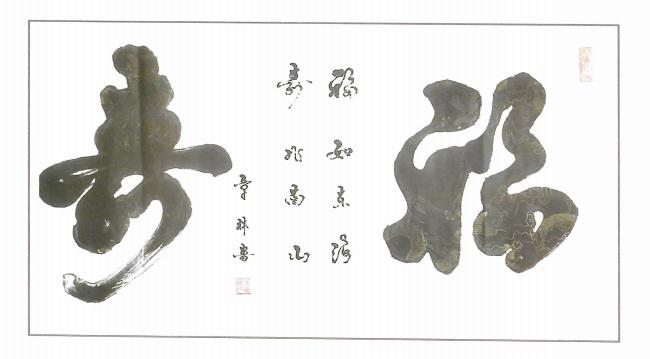 福
福如东海
寿比南山
章 書
寿